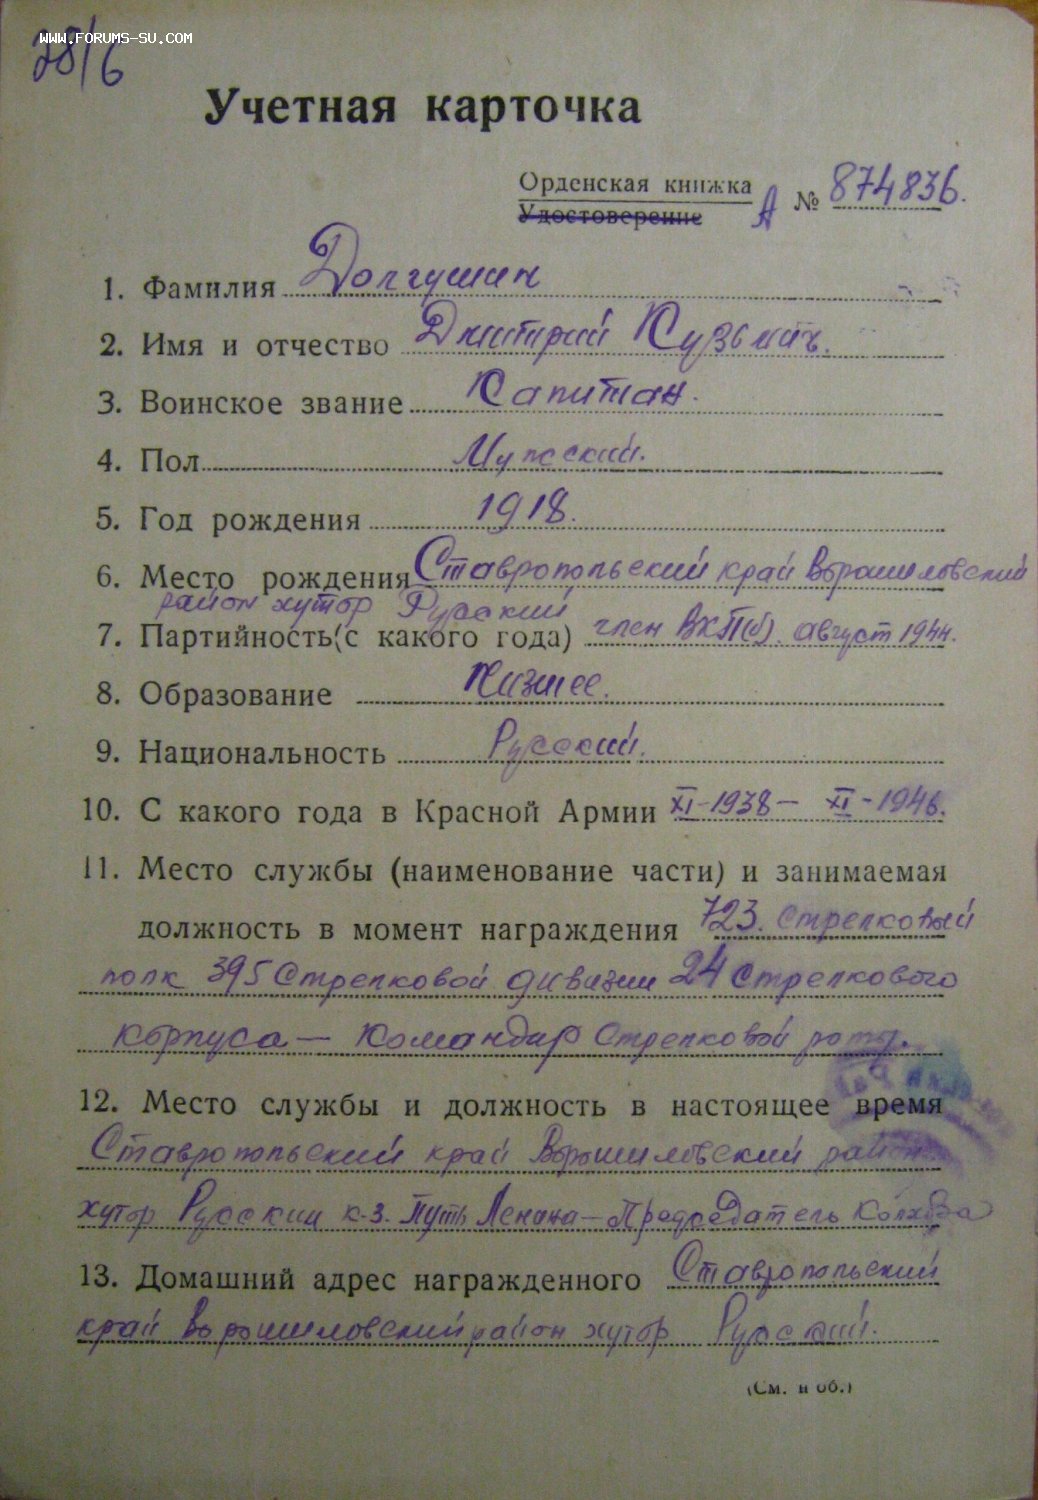 WWW.FORUMS-SU.COM
28/6
Учетная карточка
Орденская книжка
Удостоверение А № 874836.
1. Фамилия Долгушин
2. Имя и отчество Дмитрий Кузьмич.
3. Воинское звание Капитан.
4. Пол Мужской.
5. Год рождения 1918.
6. Место рождения Ставропольский край Ворошиловский
район хутор Русский
7. Партийность (с какого года) член ВКП(б). август 1944.
8. Образование Низшее.
9. Национальность Русский.
10. С какого года в Красной Армии XI-1938 – XI-1946.
11. Место службы (наименование части) и занимаемая
должность в момент награждения 723. стрелковый
полк 395 Стрелковой дивизии 24 Стрелкового
корпуса – Командир Стрелковой роты.
12. Место службы и должность в настоящее время
Ставропольский край Ворошиловский район
хутор Русский к-з. Путь Ленина – Председатель Колхоза
13. Домашний адрес награжденного Ставропольский
край Ворошиловский район хутор Русский.
(См. н об.)